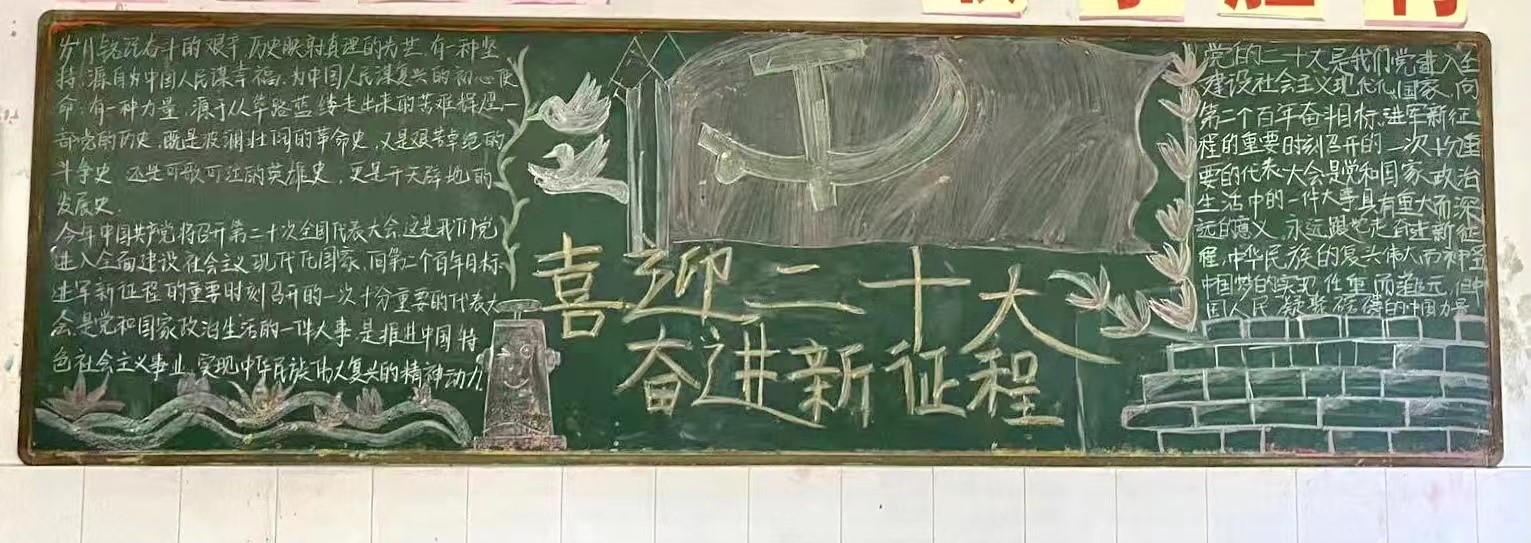 岁月铭记奋斗的艰辛,历史映射真理的光芒.有一种坚
持,源自为中国人民谋幸福,为中国人民谋复兴的初心使
命;有一种力量,源于从筚路蓝缕走出来的苦难辉煌一
部党的历史,既是波澜壮阔的革命史,又是艰苦卓绝的
斗争史,还是可歌可泣的英雄史,更是开天辟地的
发展史.
今年中国共产党将召开第二十次全国代表大会,这是我们党
进入全面建设社会主义现代化国家,向第二个百年目标,
进军新征程的重要时刻召开的一次十分重要的代表大
会,是党和国家政治生活的一件大事,是推进中国特
色社会主义事业,实现中华民族伟大复兴的精神动力
喜迎二十大
奋进新征程
党的二十大是我们党进入全
建设社会主义现代化国家,向
第二个百年奋斗目标,进军新征
程的重要时刻召开的一次十分重
要的代表大会是党和国家政治
生活中的一件大事具有重大而深
远的意义,永远跟党走奋进新征
程,中华民族的复兴伟大而神圣
中国梦的实现任重而道远,
国人民凝聚磅礴的中国力量